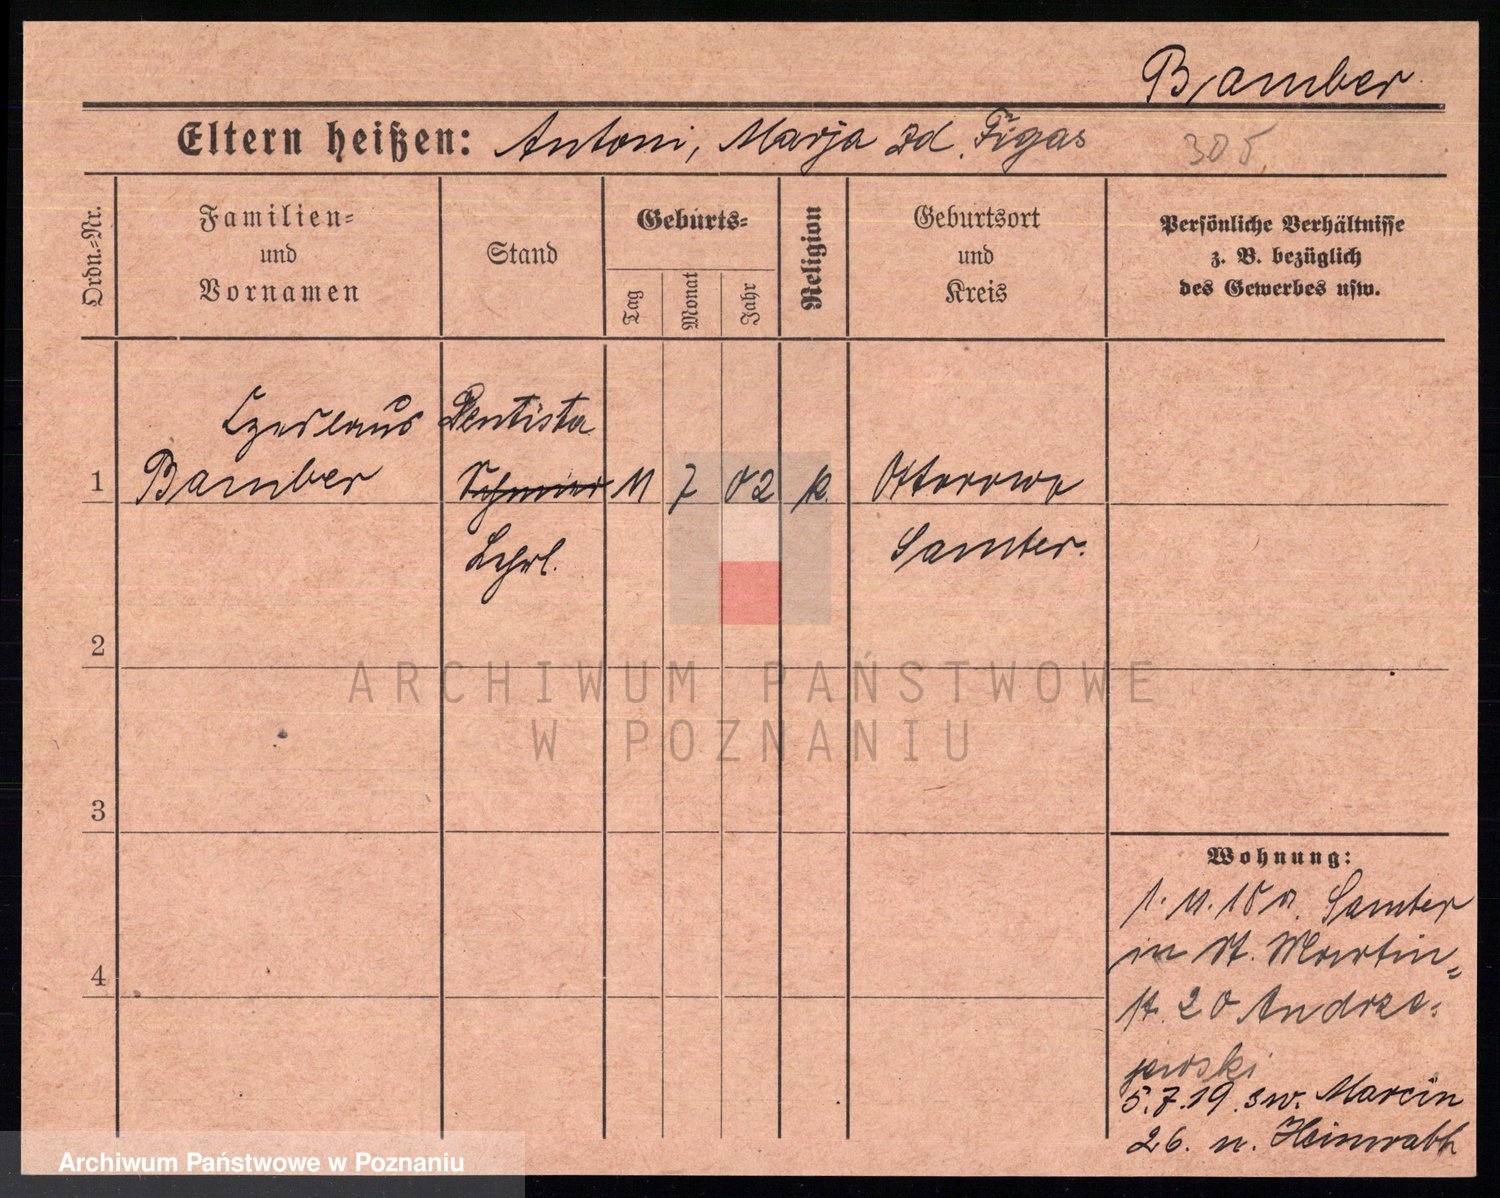 Bamber
Eltern heißen: Antoni, Marja zd. Figas 305.
Ordn.=Nr.
Familien=
und
Vornamen
Stand
Geburts=
Tag
Monat
Jahr
Religion
Geburtsort
und
Kreis
Persönliche Verhältnisse
z. B. bezüglich
des Gewerbes usw.
Czeslaus Dentista
1 Bamber 11 7 02 k. Ottorowo
Lehrl. Samter.
2
3
4
ARCHIWUM PAŃSTWOWE
W POZNANIU
Wohnung:
1. 11. 18 a. Samter
in St. Martin=
st. 20 Andrze=
jewski
5.7.19. św. Marcin
26. n.
Archiwum Państwowe w Poznaniu